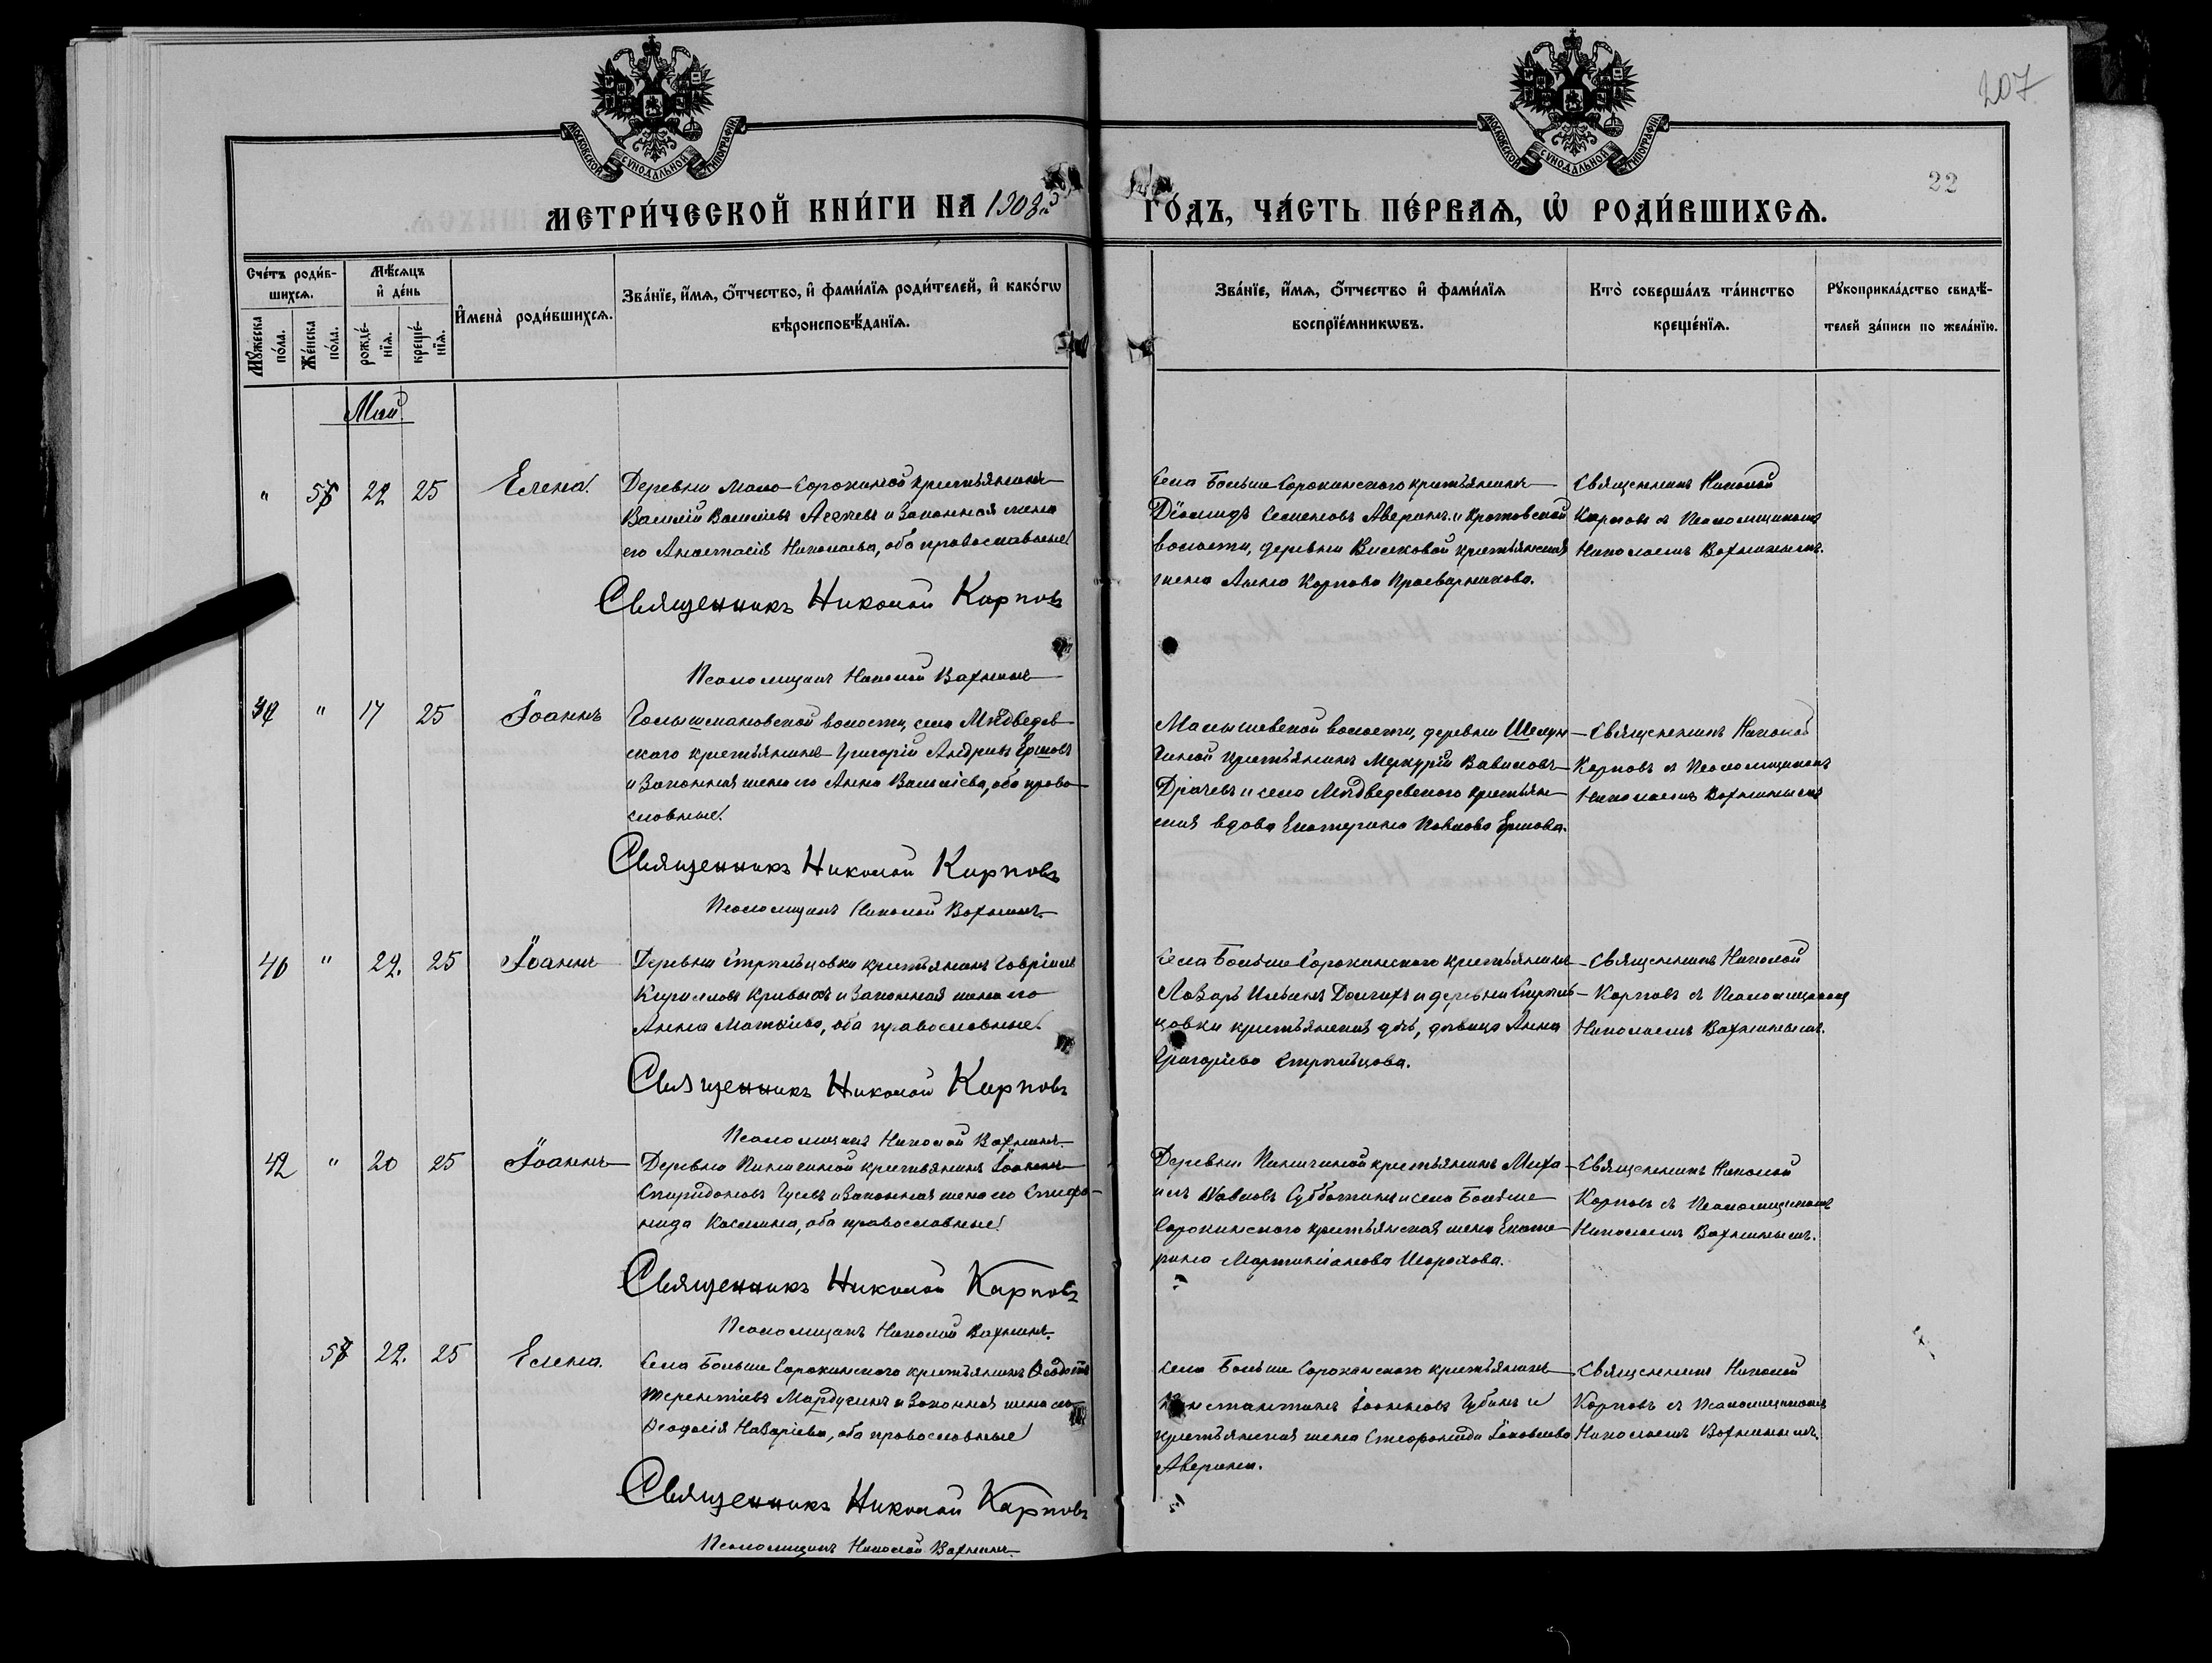 207
22
МОСКОВСКОЙ СУНОДАЛЬНОЙ ТИПОГРАФІИ
МОСКОВСКОЙ СУНОДАЛЬНОЙ ТИПОГРАФІИ
МЕТРИ́ЧЕСКОЙ КНИ́ГИ НА 1903й ГО́ДЪ, ЧА́СТЬ ПЕ́РВАѦ, Ѡ҆ РОДИ́ВШИХСѦ.
Сче́тъ роди́в-
шихсѧ.
Мꙋ́жеска
по́ла.
Же́нска
по́ла.
Мѣ́сѧцъ
и҆ де́нь
рожде́-
нїѧ.
креще́-
нїѧ.
И҆мена̀ роди́вшихсѧ.
Зва́нїе, и҆́мѧ, ѻ҆́тчество, и҆ фами́лїѧ роди́телей, и҆ како́гѡ
вѣроисповѣ́данїѧ.
Зва́нїе, и҆́мѧ, ѻ҆́тчество и҆ фами́лїѧ
воспрїе́мникѡвъ.
Кто̀ соверша́лъ та́инство
креще́нїѧ.
Рꙋкоприкла́дство свидѣ́-
телей за́писи по жела́нїю.
Май.
" 22 25 Елена.
Деревни Мало-Сорокиной крестьянинъ
Василій Васильевъ и законная жена
его Анастасія Николаева, оба православные
Священникъ Николай Карповъ
Псаломщикъ Николай Вахнинъ
Села Больше Сорокинского крестьянинъ
Діомидъ Семеновъ Аверинъ и Кротовской
волости, деревни крестьянская
жена Анна Карпова Просвирникова.
Священникъ Николай
Карповъ съ Псаломщикомъ
Николаемъ Вахнинымъ.
" 17 25 Іоаннъ
Голышмановской волости, села Медведев-
ского крестьянинъ Григорій Андреевъ Ершовъ
и законная жена его Анна Васильева, оба право-
славные.
Священникъ Николай Карповъ
Псаломщикъ Николай Вахнинъ.
Малышевской волости, деревни
крестьянинъ Меркурій Вавиловъ
Драчевъ и села Медведевского крестьян-
ская вдова Екатерина Павлова Ершова.
Священникъ Николай
Карповъ съ Псаломщикомъ
Николаемъ Вахнинымъ
" 22. 25 Іоаннъ
Деревни Стрельцовки крестьянинъ Гавріилъ
Кирилловъ Кривыхъ и законная жена его
Анна Матвѣева, оба православные.
Священникъ Николай Карповъ
Псаломщикъ Николай Вахнинъ.
Села Больше Сорокинского крестьянинъ
Лазарь Ильинъ Долгихъ и деревни Стрѣль-
цовки крестьянская дочь, дѣвица Анна
Григорьева Стрѣльцова.
Священникъ Николай
Карповъ съ Псаломщикомъ
Николаемъ Вахнинымъ.
42 " 20 25 Іоаннъ
Деревни Пинигиной крестьянинъ Іоаннъ
Спиридоновъ Гусевъ и законная жена его Стефа-
нида Космина, оба православные.
Священникъ Николай Карповъ
Псаломщикъ Николай Вахнинъ.
Деревни Пинигиной крестьянинъ Миха-
илъ Павловъ Субботинъ и села Больше
Сорокинского крестьянская жена Екате-
рина Мартиніанова Шорохова.
Священникъ Николай
Карповъ съ Псаломщикомъ
Николаемъ Вахнинымъ.
22. 25 Елена.
Села Больше Сорокинского крестьянинъ Ѳеодотъ
Терентіевъ и законная жена его
Ѳеодосія Назаріева, оба православные
Священникъ Николай Карповъ
Псаломщикъ Николай Вахнинъ.
Села Больше Сорокинского крестьянинъ
Константинъ Іоанновъ Губинъ и
крестьянская жена Стефанида Іаковлева
Аверина.
Священникъ Николай
Карповъ съ Псаломщикомъ
Николаемъ Вахнинымъ.